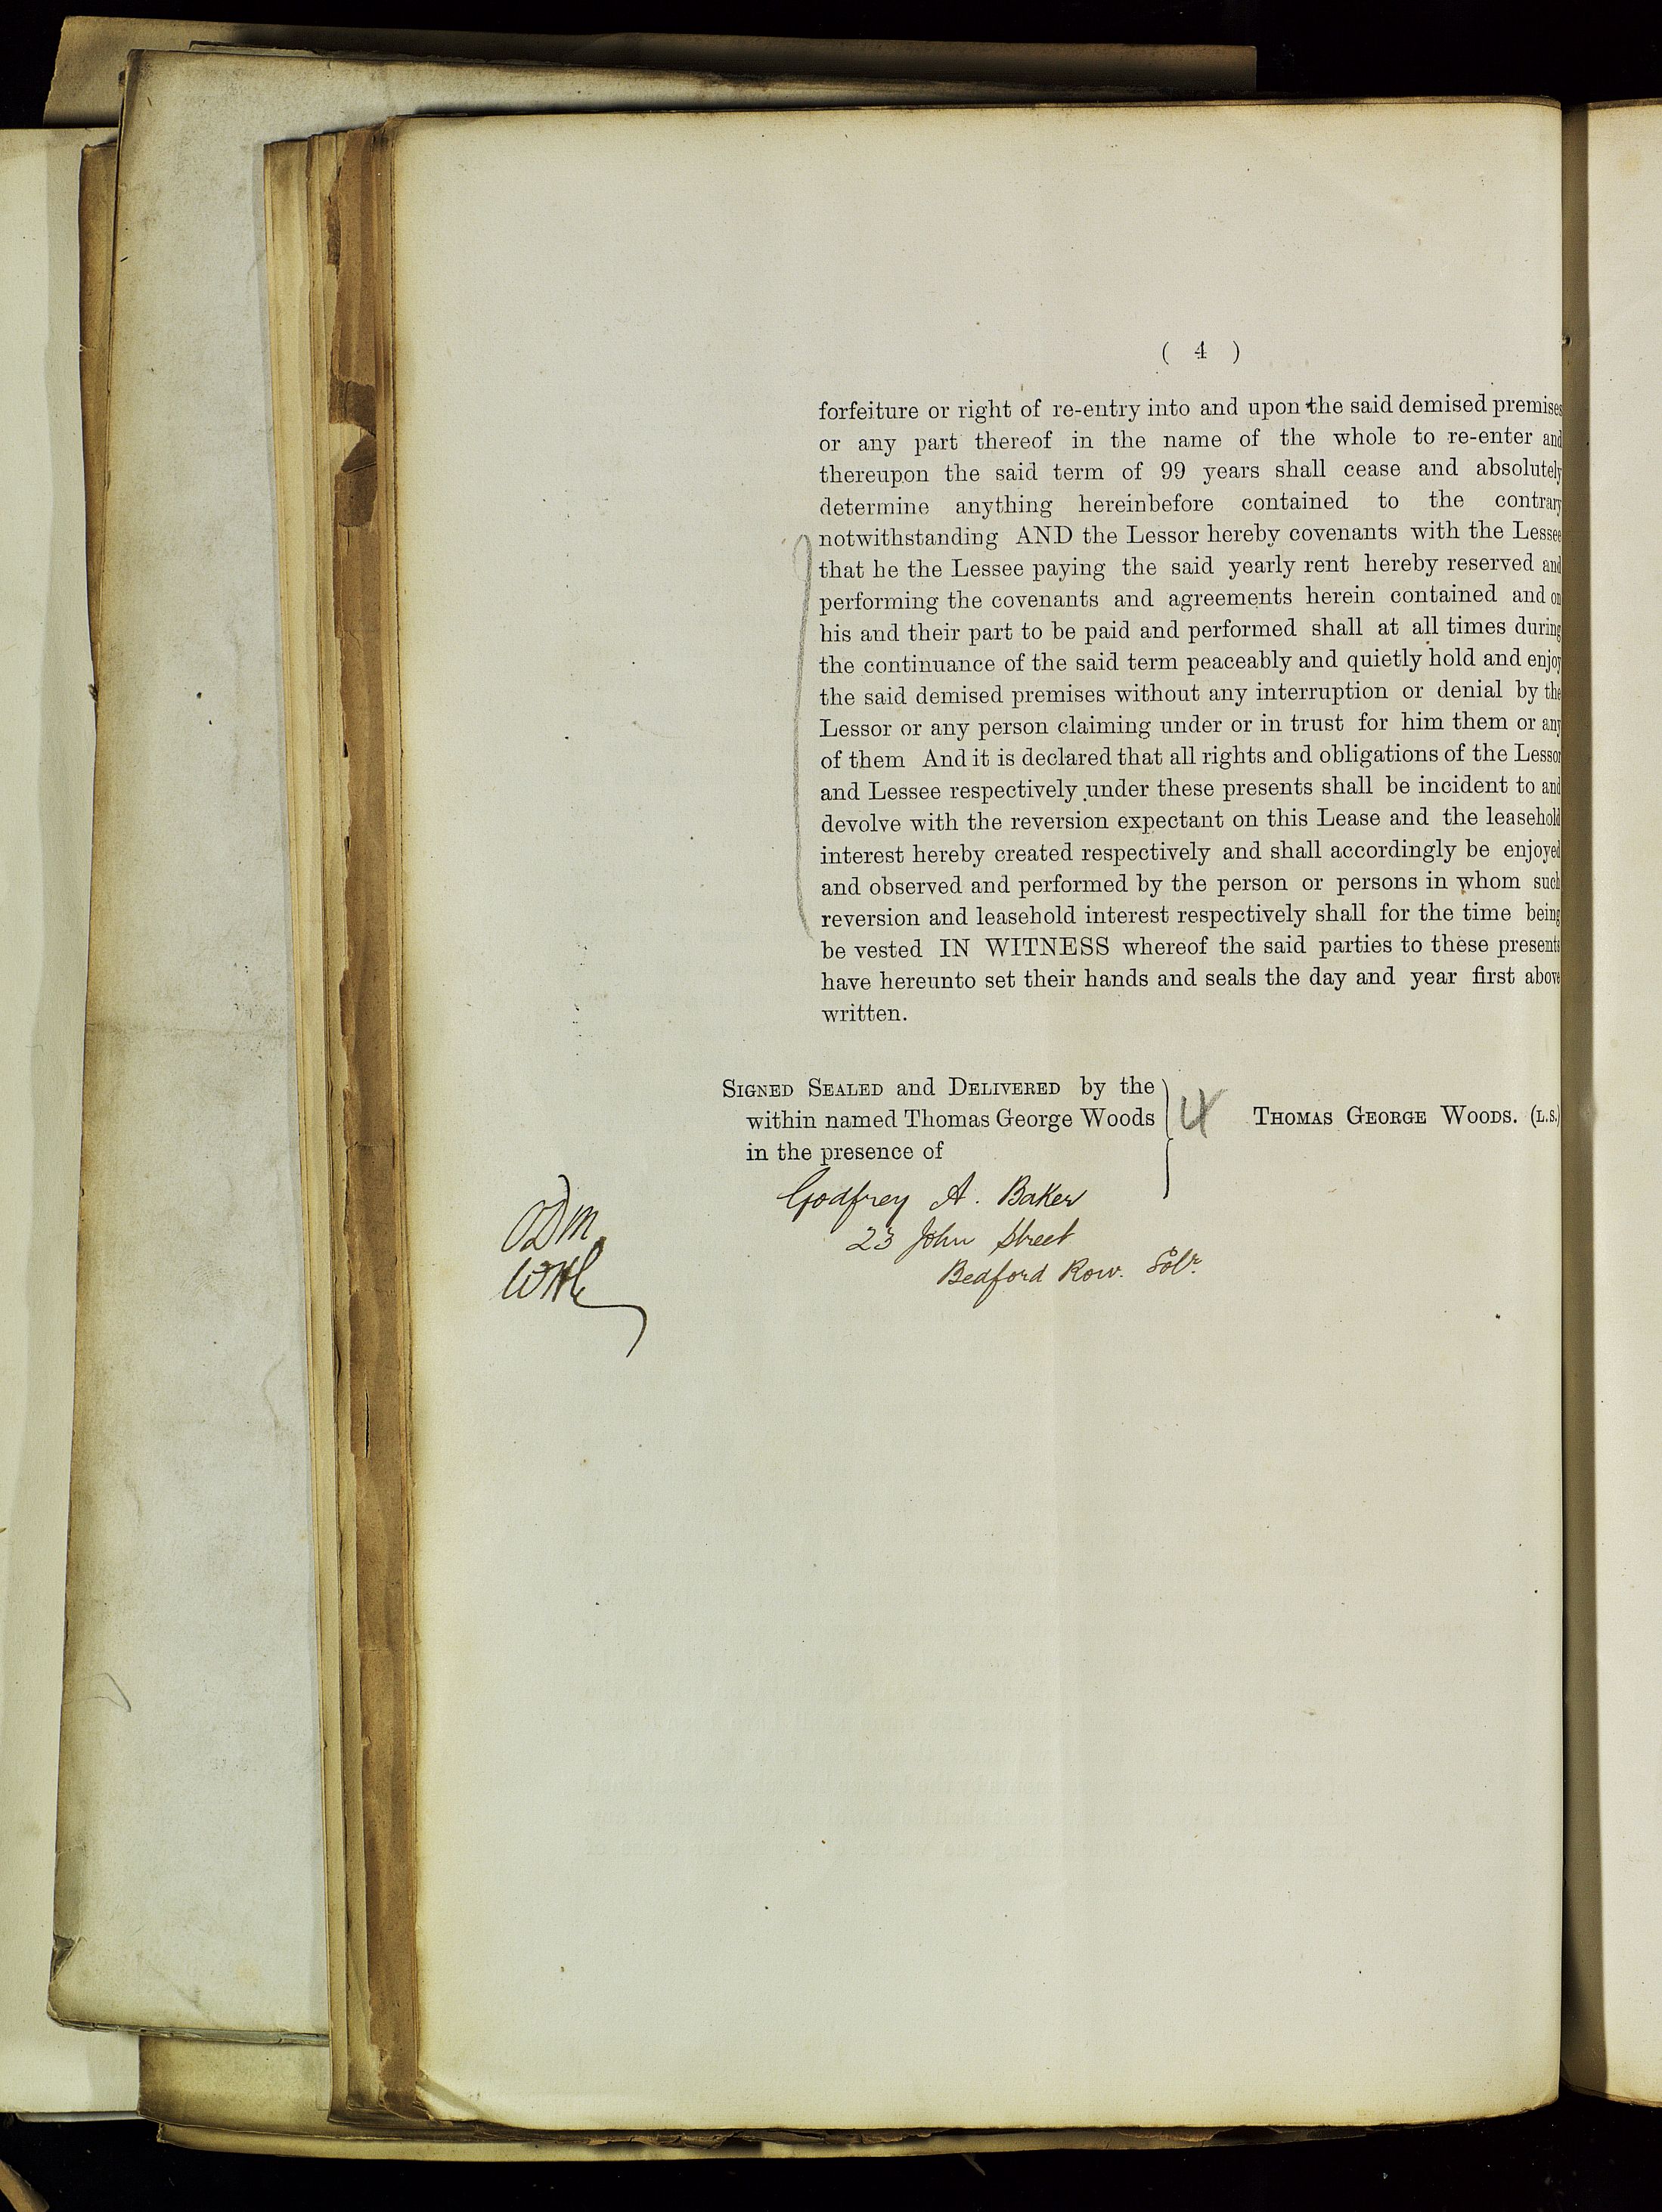 ( 4 )
forfeiture or right of re-entry into and upon the said demised premises
or any part thereof in the name of the whole to re-enter and
thereupon the said term of 99 years shall cease and absolutely
determine anything hereinbefore contained to the contrary
notwithstanding AND the Lessor hereby covenants with the Lessee
that he the Lessee paying the said yearly rent hereby reserved and
performing the covenants and agreements herein contained and on
his and their part to be paid and performed shall at all times during
the continuance of the said term peaceably and quietly hold and enjoy
the said demised premises without any interruption or denial by the
Lessor or any person claiming under or in trust for him them or any
of them And it is declared that all rights and obligations of the Lessor
and Lessee respectively under these presents shall be incident to and
devolve with the reversion expectant on this Lease and the leasehold
interest hereby created respectively and shall accordingly be enjoyed
and observed and performed by the person or persons in whom such
reversion and leasehold interest respectively shall for the time being
be vested IN WITNESS whereof the said parties to these presents
have hereunto set their hands and seals the day and year first above
written.
SIGNED SEALED and DELIVERED by the
within named Thomas George Woods
in the presence of
4 THOMAS GEORGE WOODS. (L.S.)
Godfrey A. Baker
23 John Street
Bedford Row. Solr.